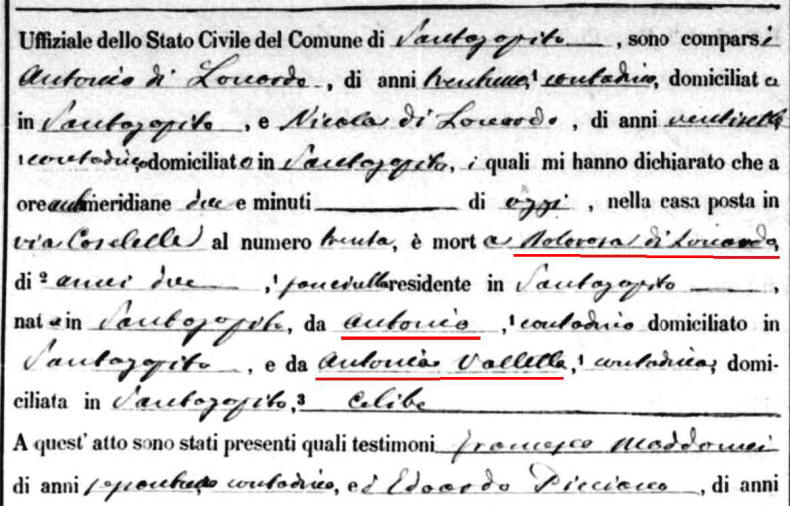 Uffiziale dello Stato Civile del Comune di Santagapito, sono comparsi
Antonio di Lonardo, di anni trentuno, contadino, domiciliato
in Santagapito, e Nicola di Lonardo, di anni ventisette
contadino domiciliato in Santagapito, i quali mi hanno dichiarato che a
ore antimeridiane due e minuti di oggi, nella casa posta in
via al numero trenta, è morta Dolorosa di Lonardo,
di anni due, fanciulla residente in Santagapito,
nata in Santagapito, da Antonio, contadino domiciliato in
Santagapito, e da Antonia Vallella, contadina, domi-
ciliata in Santagapito, celibe
A quest' atto sono stati presenti quali testimoni Francesco
di anni contadino, ed Edoardo Picciano, di anni